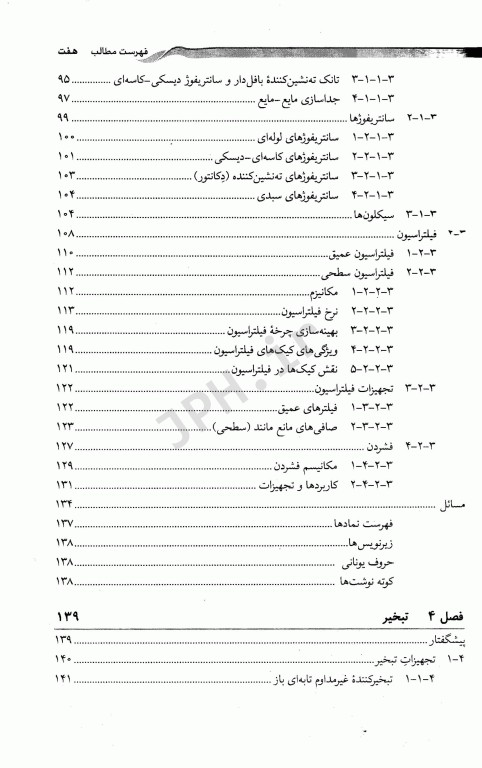 فهرست مطالب هفت
۳-۱-۱-۳ تانک ته‌نشین‌کنندهٔ بافل‌دار و سانتریفوژ دیسکی-کاسه‌ای ............... ۹۵
۳-۱-۱-۴ جداسازی مایع-مایع ............... ۹۷
۳-۱-۲ سانتریفوژها ............... ۹۹
۳-۱-۲-۱ سانتریفوژهای لوله‌ای ............... ۱۰۰
۳-۱-۲-۲ سانتریفوژهای کاسه‌ای-دیسکی ............... ۱۰۱
۳-۱-۲-۳ سانتریفوژهای ته‌نشین‌کننده (دِکانتور) ............... ۱۰۳
۳-۱-۲-۴ سانتریفوژهای سبدی ............... ۱۰۴
۳-۱-۳ سیکلون‌ها ............... ۱۰۴
۳-۲ فیلتراسیون ............... ۱۰۸
۳-۲-۱ فیلتراسیون عمیق ............... ۱۱۰
۳-۲-۲ فیلتراسیون سطحی ............... ۱۱۲
۳-۲-۲-۱ مکانیزم ............... ۱۱۲
۳-۲-۲-۲ نرخ فیلتراسیون ............... ۱۱۳
۳-۲-۲-۳ بهینه‌سازی چرخهٔ فیلتراسیون ............... ۱۱۹
۳-۲-۲-۴ ویژگی‌های کیک‌های فیلتراسیون ............... ۱۱۹
۳-۲-۲-۵ نقش کیک‌ها در فیلتراسیون ............... ۱۲۱
۳-۲-۳ تجهیزات فیلتراسیون ............... ۱۲۲
۳-۲-۳-۱ فیلترهای عمیق ............... ۱۲۲
۳-۲-۳-۲ صافی‌های مانع مانند (سطحی) ............... ۱۲۳
۳-۲-۴ فشردن ............... ۱۲۷
۳-۲-۴-۱ مکانیسم فشردن ............... ۱۲۹
۳-۲-۴-۲ کاربردها و تجهیزات ............... ۱۳۱
مسائل ............... ۱۳۴
فهرست نمادها ............... ۱۳۷
زیرنویس‌ها ............... ۱۳۸
حروف یونانی ............... ۱۳۸
کوته نوشت‌ها ............... ۱۳۸
فصل ۴ تبخیر ۱۳۹
پیشگفتار ............... ۱۳۹
۴-۱ تجهیزاتِ تبخیر ............... ۱۴۰
۴-۱-۱ تبخیرکنندهٔ غیرمداوم تابه‌ای باز ............... ۱۴۱
JPH.ir